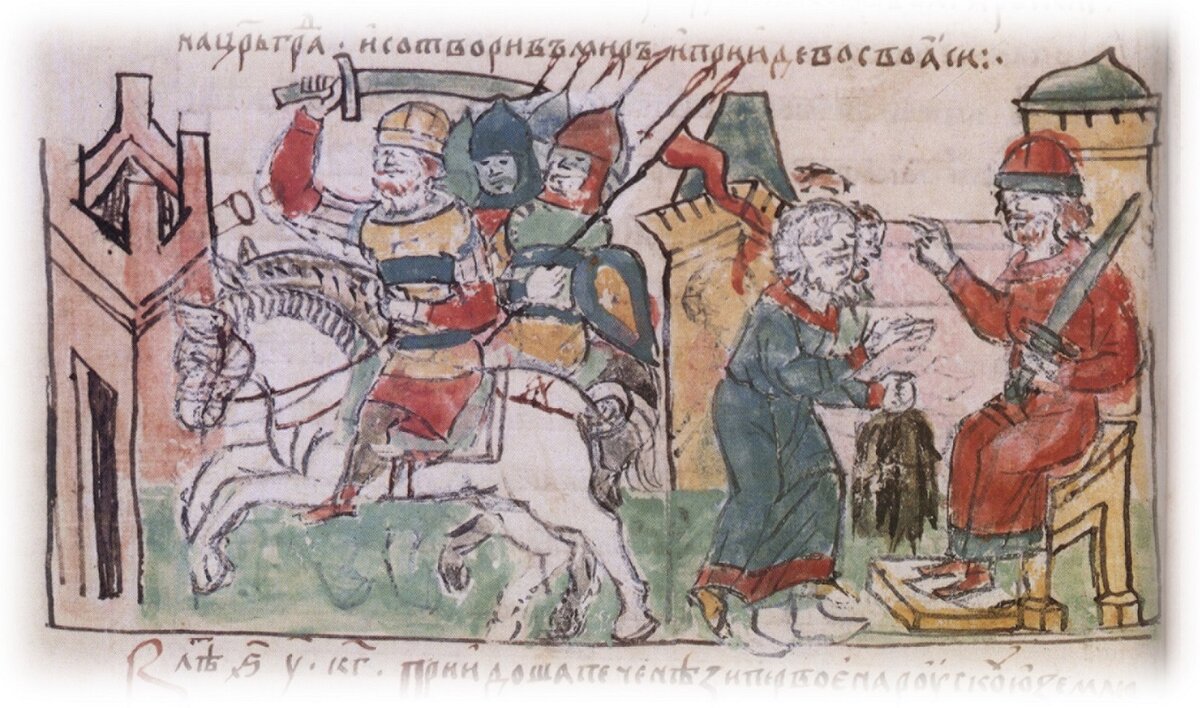 нацр҃ьгра́д . исотворивъмиръ ипрїидевосвоаси:·
Влѣт ҂ѕ у·кг· прїидошапеченѣзипервоенароускоуюземлю